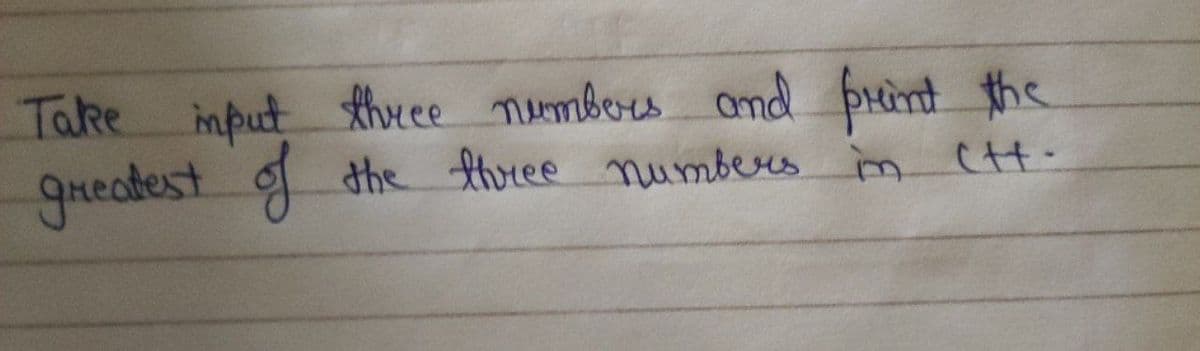 Take input three numbers and print the
greatest of the three numbers in C++.